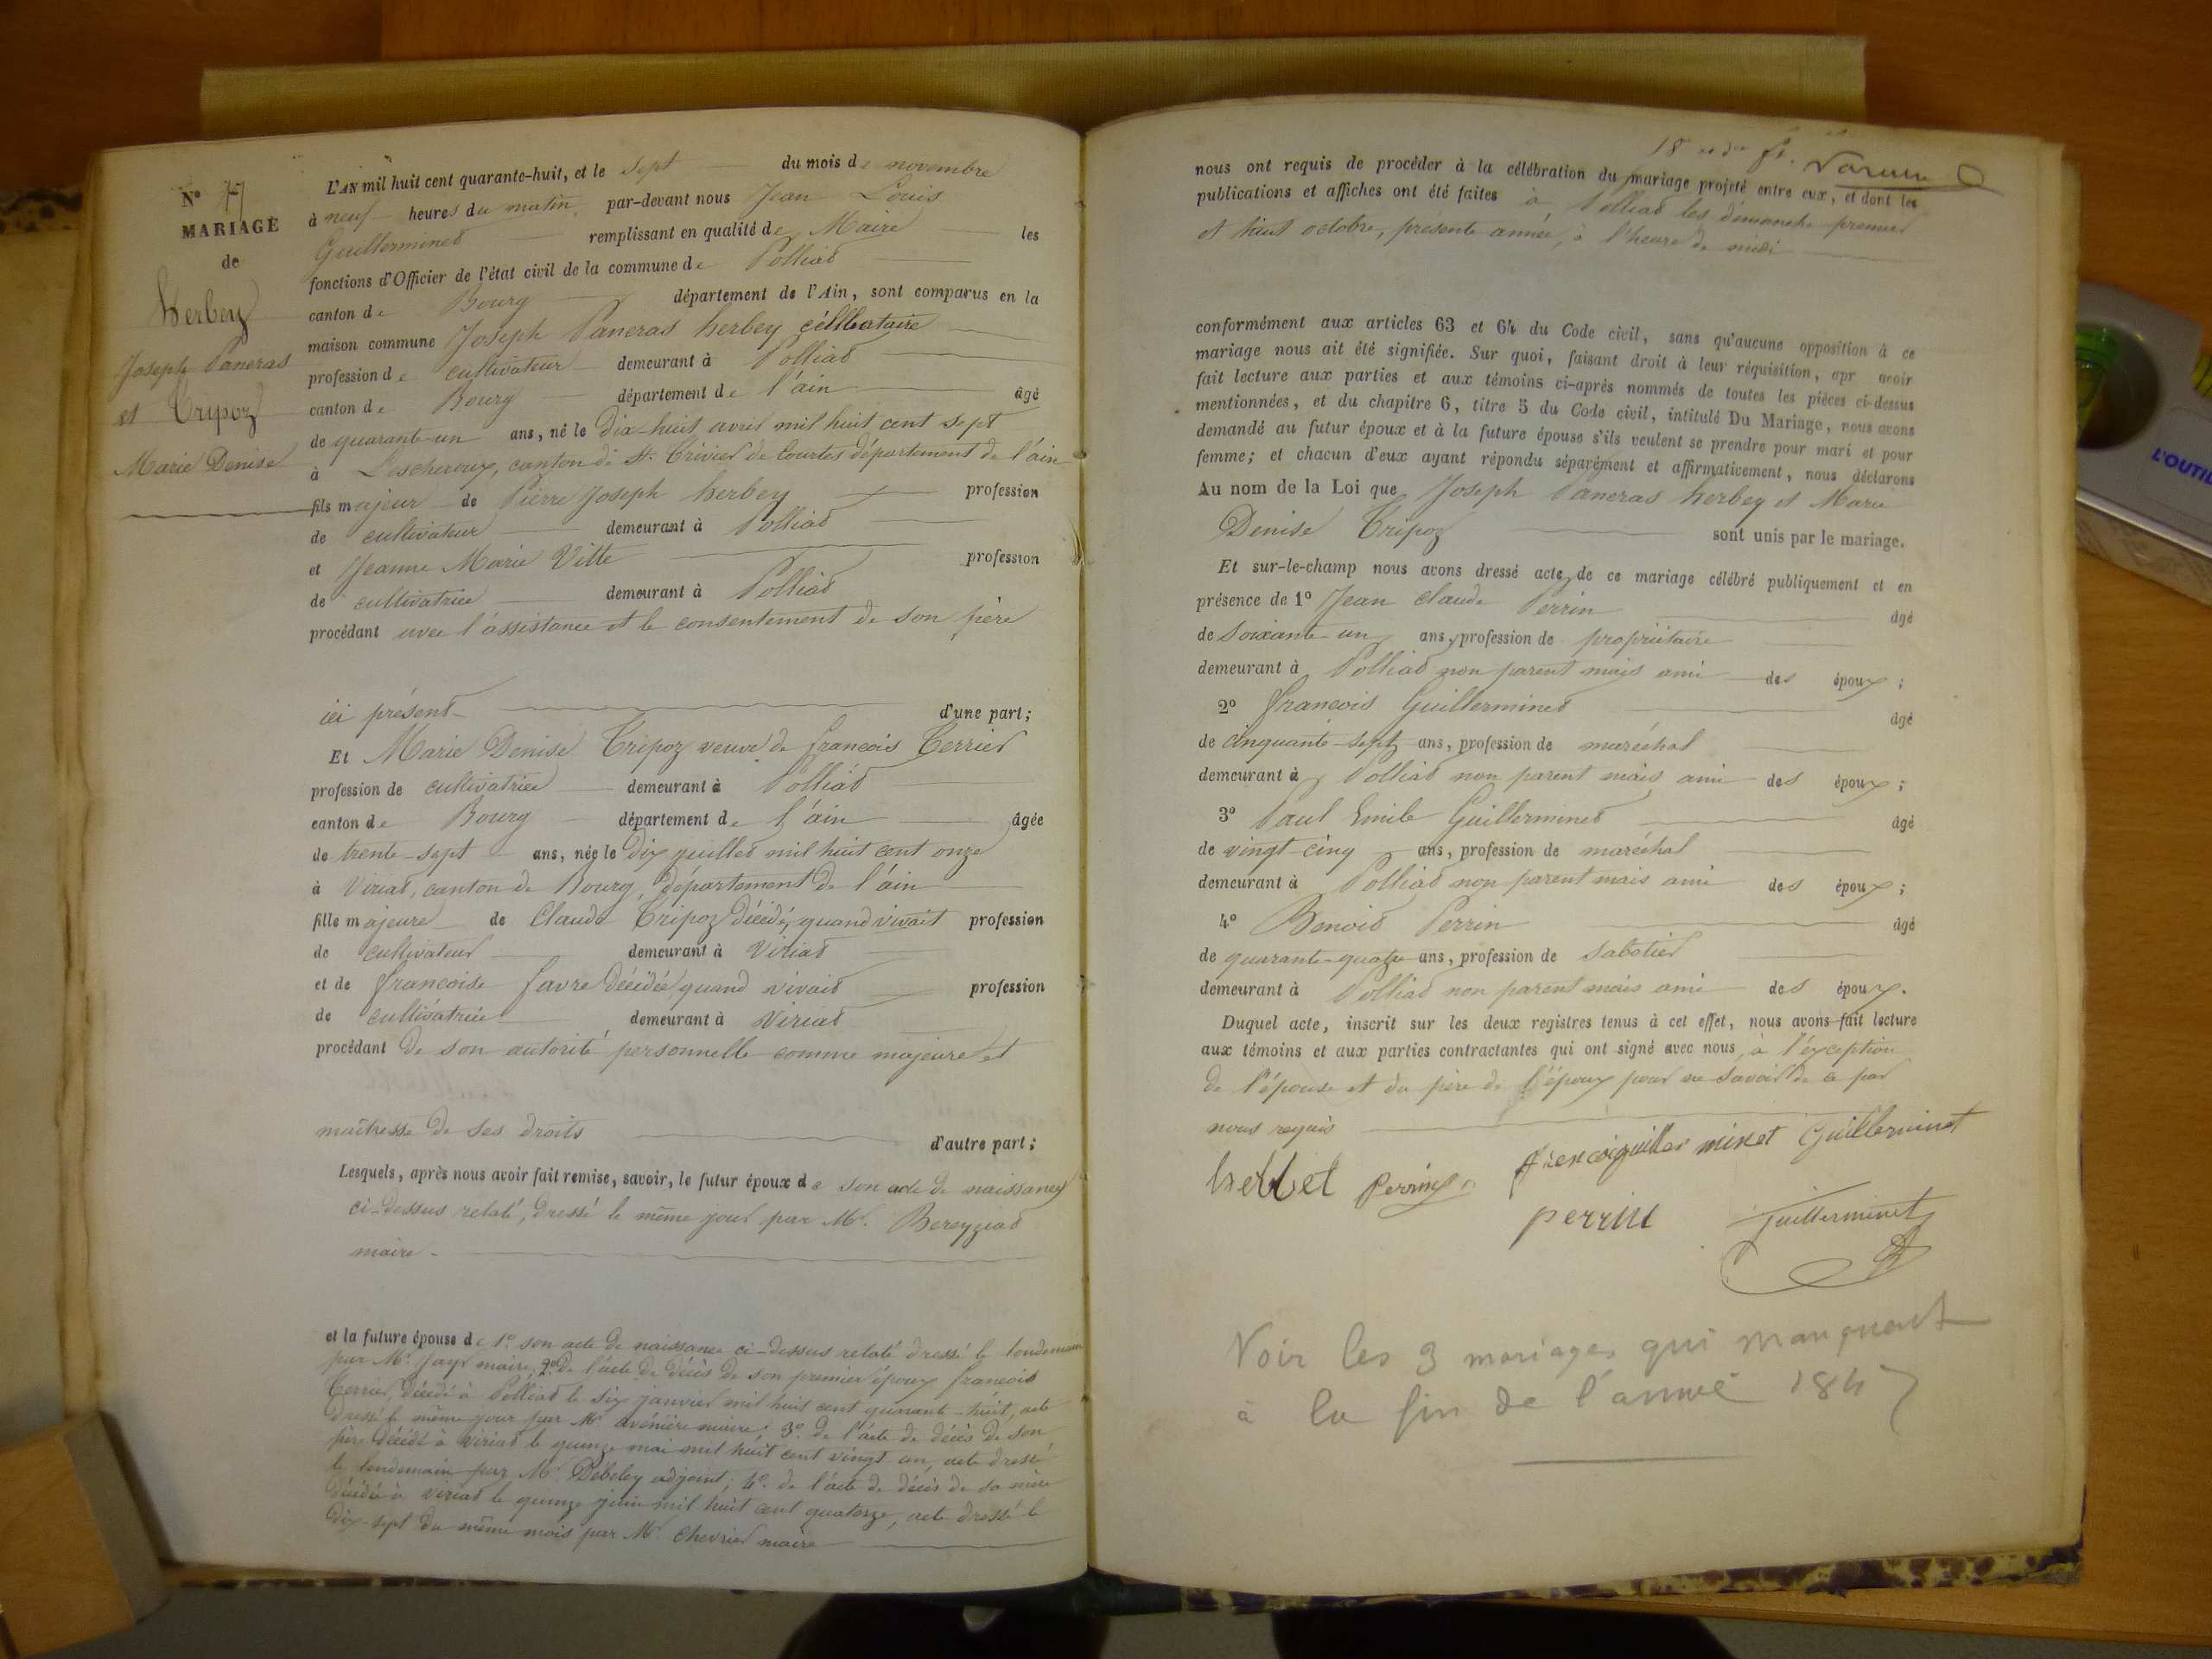 N° 77
MARIAGE
de
herbey
Joseph Paneras
et Tripoz
Marie Denise
L'AN mil huit cent quarante-huit, et le sept du mois de novembre
à neuf heures du matin, par-devant nous Jean Louis
Guillerminet remplissant en qualité de Maire les
fonctions d'Officier de l'état civil de la commune de Polliat
canton de Bourg département de l'Ain, sont comparus en la
maison commune Joseph Paneras herbey célibataire
profession de cultivateur demeurant à Polliat
canton de Bourg département de l'ain âgé
de quarante-un ans, né le Dix-huit avril mil huit cent sept
à Lescheroux, canton de St. Trivier de Courtes département de l'ain
fils majeur de Pierre Joseph herbey profession
de cultivateur demeurant à Polliat
et Jeanne Marie Vitte profession
de cultivatrice demeurant à Polliat
procédant avec l'assistance et le consentement de son père
ici présent d'une part;
Et Marie Denise Tripoz veuve de francois Terrier
profession de cultivatrice demeurant à Polliat
canton de Bourg département de l'ain âgée
de trente-sept ans, née le Dix juillet mil huit cent onze
à Viriat, canton de Bourg, département de l'ain
fille majeure de Claude Tripoz décédé, quand vivait profession
de cultivateur demeurant à Viriat
et de francoise favre décédée, quand vivait profession
de cultivatrice demeurant à Viriat
procédant de son autorité personnelle comme majeure et
maîtresse de ses droits d'autre part;
Lesquels, après nous avoir fait remise, savoir, le futur époux de son acte de naissance
ci-dessus relaté, dressé le même jour par Mr. Bereyziat
maire
et la future épouse de 1° son acte de naissance ci-dessus relaté dressé le lendemain
par Mr. Jayr maire; 2° de l'acte de décès de son premier époux francois
Terrier, décédé à Polliat le six janvier mil huit cent quarante-huit, acte
dressé le même jour par Mr. avénière maire; 3° de l'acte de décès de son
père décédé à Viriat le quinze mai mil huit cent vingt un, acte dressé
le lendemain par Mr. Debeley adjoint; 4° de l'acte de décès de sa mère
décédée à Viriat le quinze juin mil huit cent quatorze, acte dressé le
dix-sept du même mois par Mr. Chevrier maire
nous ont requis de procéder à la célébration du mariage projeté entre eux, et dont les
publications et affiches ont été faites à Polliat les dimanche premier
et huit octobre, présente année, à l'heure de midi
conformément aux articles 63 et 64 du Code civil, sans qu'aucune opposition à ce
mariage nous ait été signifiée. Sur quoi, faisant droit à leur réquisition, apr avoir
fait lecture aux parties et aux témoins ci-après nommés de toutes les pièces ci-dessus
mentionnées, et du chapitre 6, titre 5 du Code civil, intitulé Du Mariage, nous avons
demandé au futur époux et à la future épouse s'ils veulent se prendre pour mari et pour
femme; et chacun d'eux ayant répondu séparément et affirmativement, nous déclarons
Au nom de la Loi que Joseph Paneras herbey et Marie
Denise Tripoz sont unis par le mariage.
Et sur-le-champ nous avons dressé acte de ce mariage célébré publiquement et en
présence de 1° Jean claude Perrin âgé
de soixante-un ans, profession de propriétaire
demeurant à Polliat non parent mais ami des époux;
2° francois Guillerminet âgé
de cinquante-sept ans, profession de maréchal
demeurant à Polliat non parent mais ami des époux;
3° Paul Emile Guillerminet âgé
de vingt-cinq ans, profession de maréchal
demeurant à Polliat non parent mais ami des époux;
4° Benoit Perrin âgé
de quarante-quatre ans, profession de sabotier
demeurant à Polliat non parent mais ami des époux.
Duquel acte, inscrit sur les deux registres tenus à cet effet, nous avons fait lecture
aux témoins et aux parties contractantes qui ont signé avec nous, à l'exception
de l'épouse et du père de l'époux pour ne savoir de ce par
nous requis
Perrin Guillerminet
perrin Guillerminet
Voir les 3 mariages qui manquent
à la fin de l'année 1847
L'OUTIL